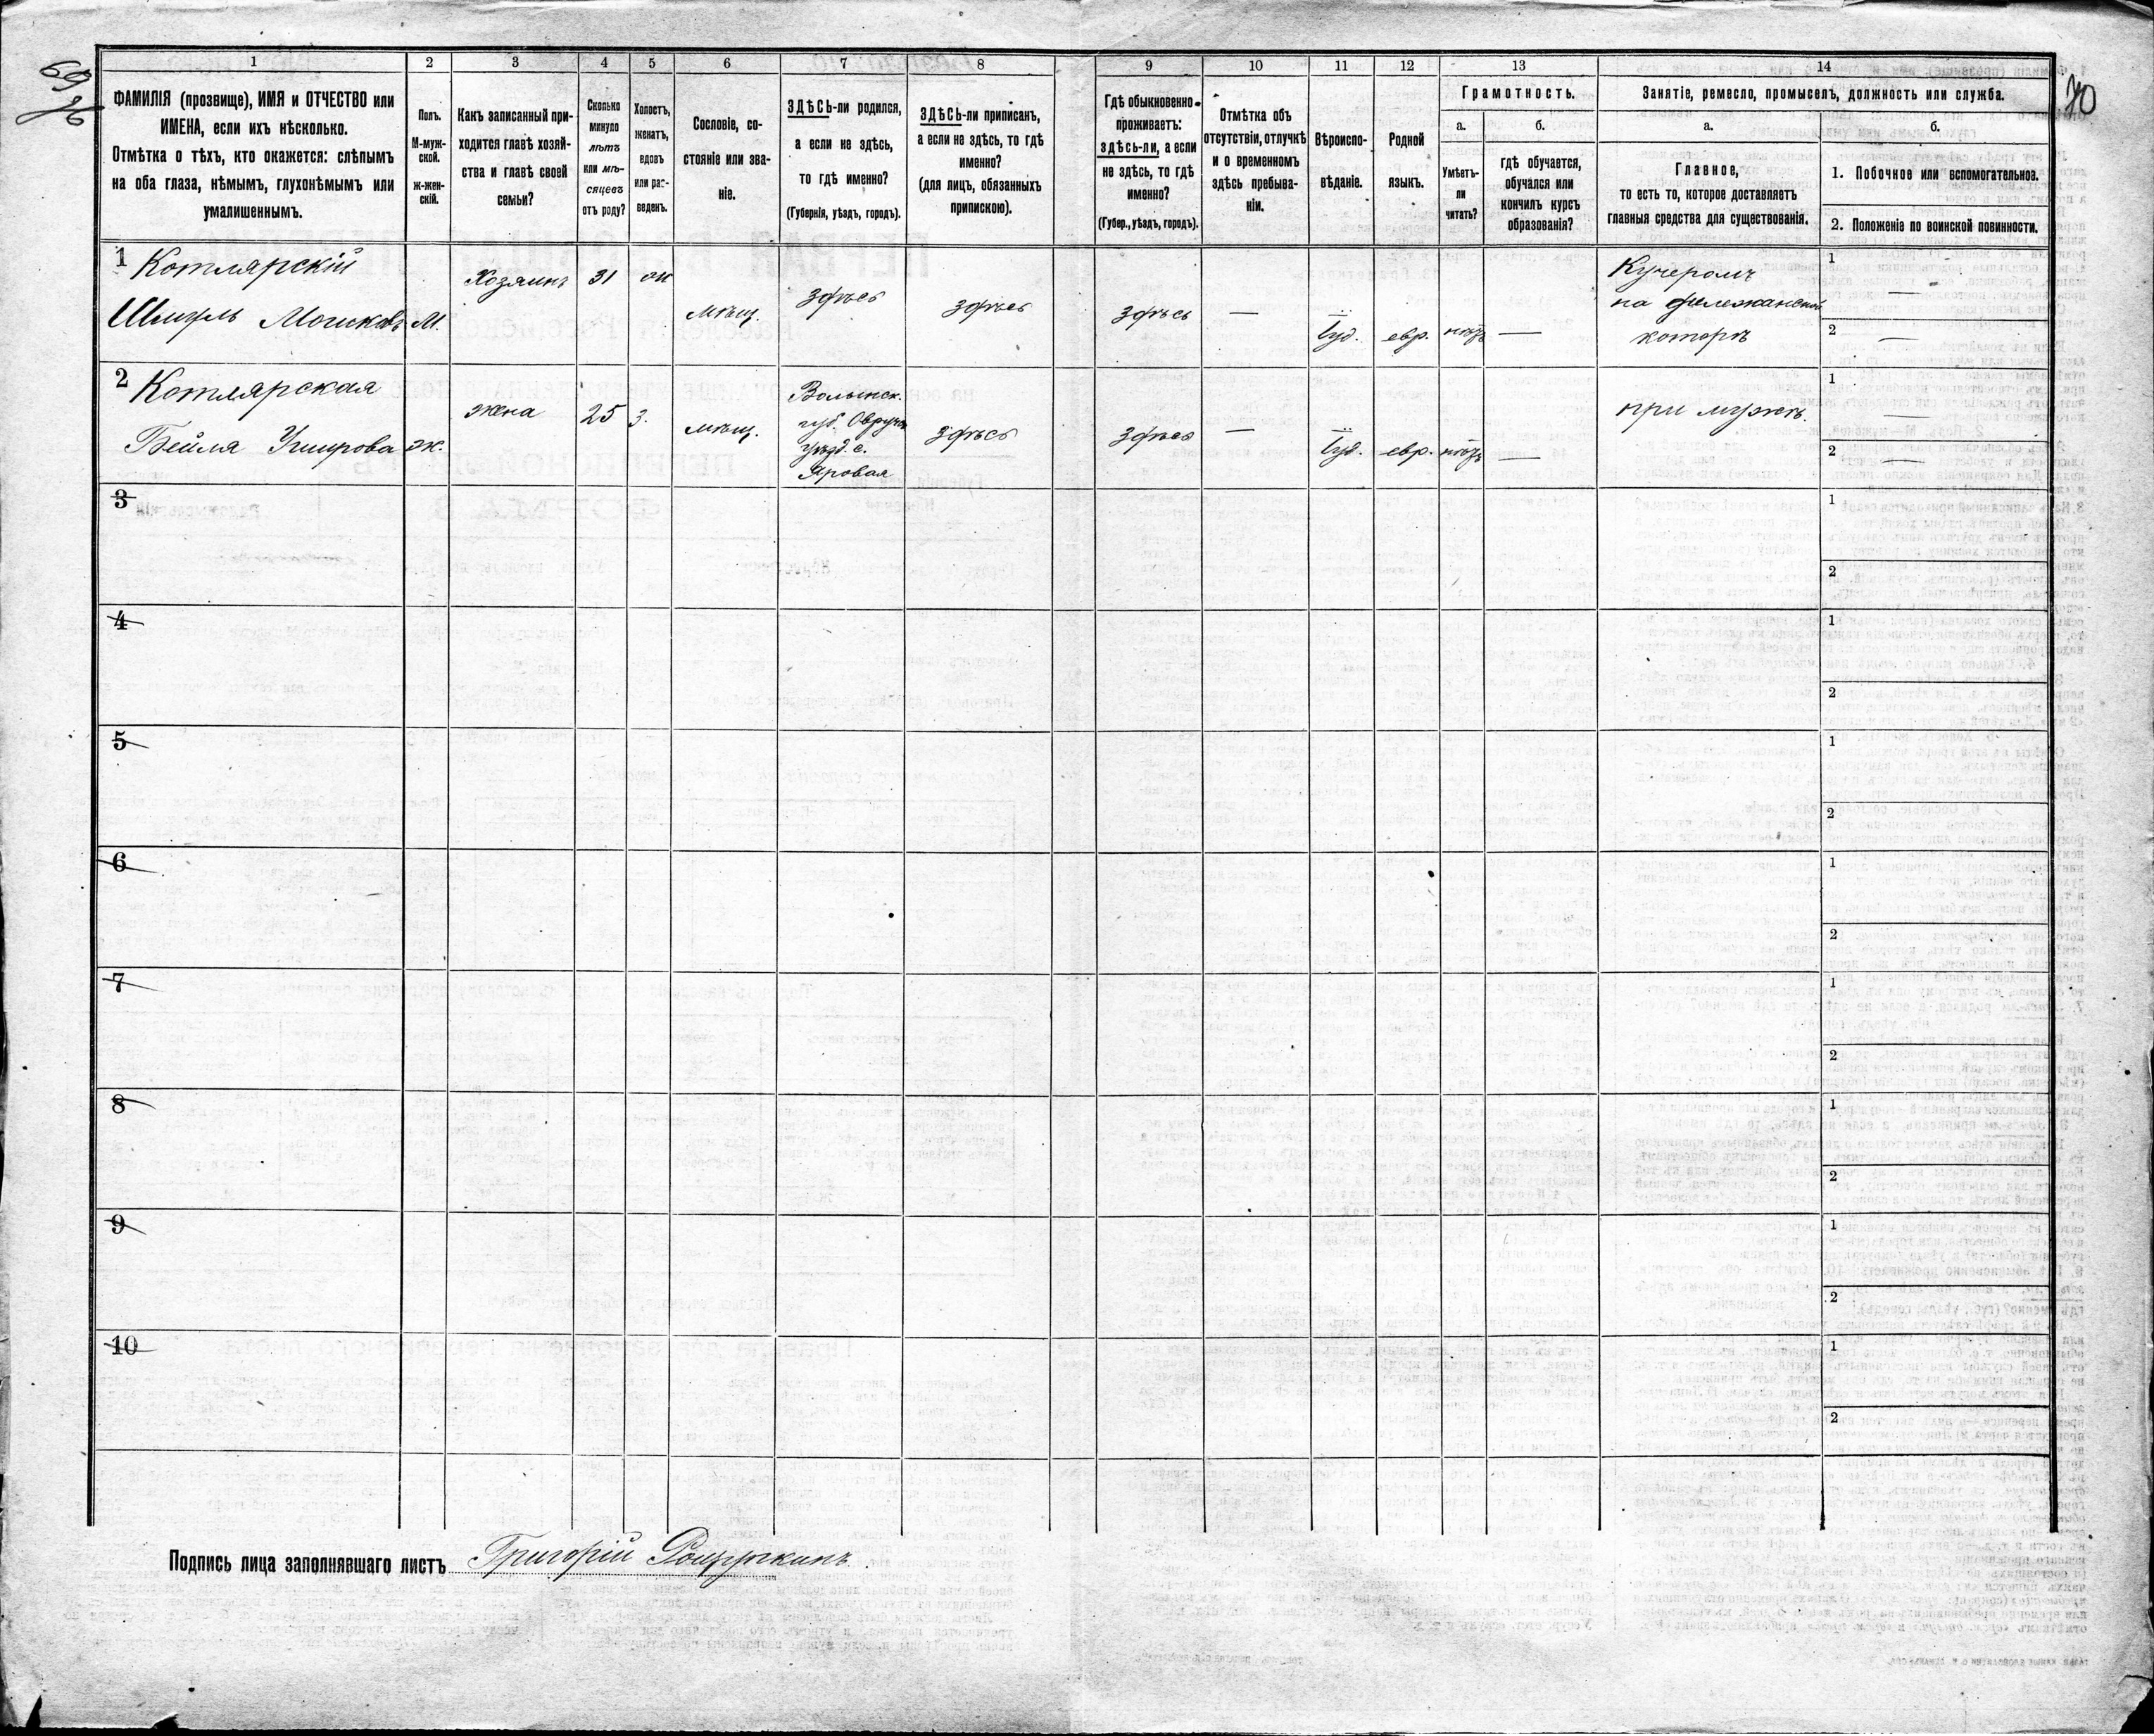 69
об
70
1
2
3
4
5
6
7
8
9
10
11
12
13
14
ФАМИЛІЯ (прозвище), ИМЯ и ОТЧЕСТВО или
ИМЕНА, если ихъ нѣсколько.
Отмѣтка о тѣхъ, кто окажется: слѣпымъ
на оба глаза, нѣмымъ, глухонѣмымъ или
умалишеннымъ.
Полъ.
М-муж-
ской.
ж-жен-
скій.
Какъ записанный при-
ходится главѣ хозяй-
ства и главѣ своей
семьи?
Сколько
минуло
лѣтъ
или мѣ-
сяцевъ
отъ роду?
Холостъ,
женатъ,
вдовъ
или раз-
веденъ.
Сословіе, со-
стояніе или зва-
ніе.
ЗДѢСЬ-ли родился,
а если не здѣсь,
то гдѣ именно?
(Губернія, уѣздъ, городъ).
ЗДѢСЬ-ли приписанъ,
а если не здѣсь, то гдѣ
именно?
(для лицъ, обязанныхъ
припискою).
Гдѣ обыкновенно
проживаетъ:
здѣсь-ли, а если
не здѣсь, то гдѣ
именно?
(Губер., уѣздъ, городъ).
Отмѣтка объ
отсутствіи, отлучкѣ
и о временномъ
здѣсь пребыва-
ніи.
Вѣроиспо-
вѣданіе.
Родной
языкъ.
Грамотность.
а.
Умѣетъ-
ли
читать?
б.
гдѣ обучается,
обучался или
кончилъ курсъ
образованія?
Занятіе, ремесло, промыселъ, должность или служба.
а.
Главное,
то есть то, которое доставляетъ
главныя средства для существованія.
б.
1. Побочное или вспомогательное.
2. Положеніе по воинской повинности.
1 Котлярскій
Шмуль Мошковъ
М.
Хозяинъ
31
мѣщ.
здѣсь
здѣсь
здѣсь
—
Іуд.
евр.
нѣтъ
—
Кучеромъ
на
1 —
2 —
2 Котлярская
Бейля
ж.
жена
25
з.
мѣщ.
Волынск.
губ. Овруч.
уѣзд. с.
Яровая
здѣсь
здѣсь
—
Іуд.
евр.
нѣтъ
—
при мужѣ.
1 —
2 —
3
1
2
4
1
2
5
1
2
6
1
2
7
1
2
8
1
2
9
1
2
10
1
2
Подпись лица заполнявшаго листъ Григорій